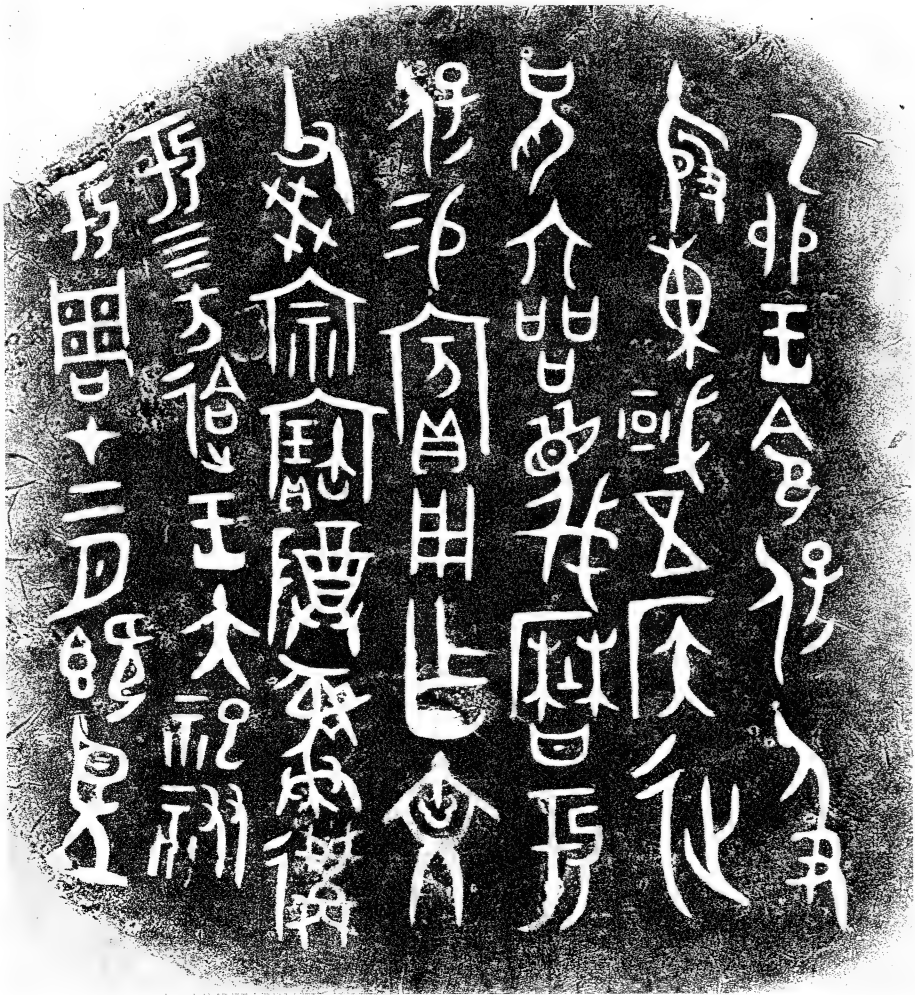 乙卯王令保及
殷東或五侯𢓊
兄六品蔑曆于
保易賓用乍文
父癸宗寶尊彝遘
于四方會王大祀祓
于周才二月既望